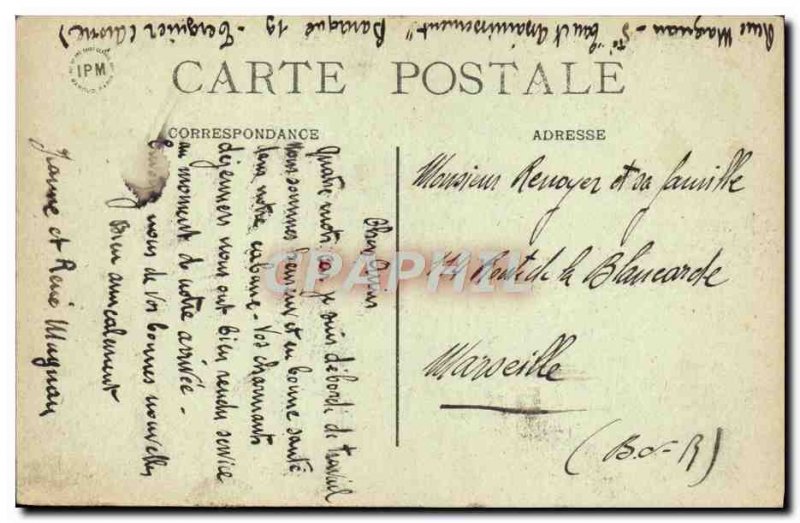 René Magnan - Sté "Eau et assainissement" Baraque 19 - Tergnier (Aisne)
IPM
CARTE POSTALE
CORRESPONDANCE
ADRESSE
Chers Amis
Quatre mots car je suis débordé de travail
Nous sommes heureux et en bonne santé
dans notre cabane - Vos charmants
déjeuners nous ont bien rendu service
au moment de notre arrivée -
nous de vos bonnes nouvelles
Bien amicalement
Jeanne et René Magnan
Monsieur Renoyer et sa famille
Route de la Blancarde
Marseille
(B-d-R)
CPAPHIL